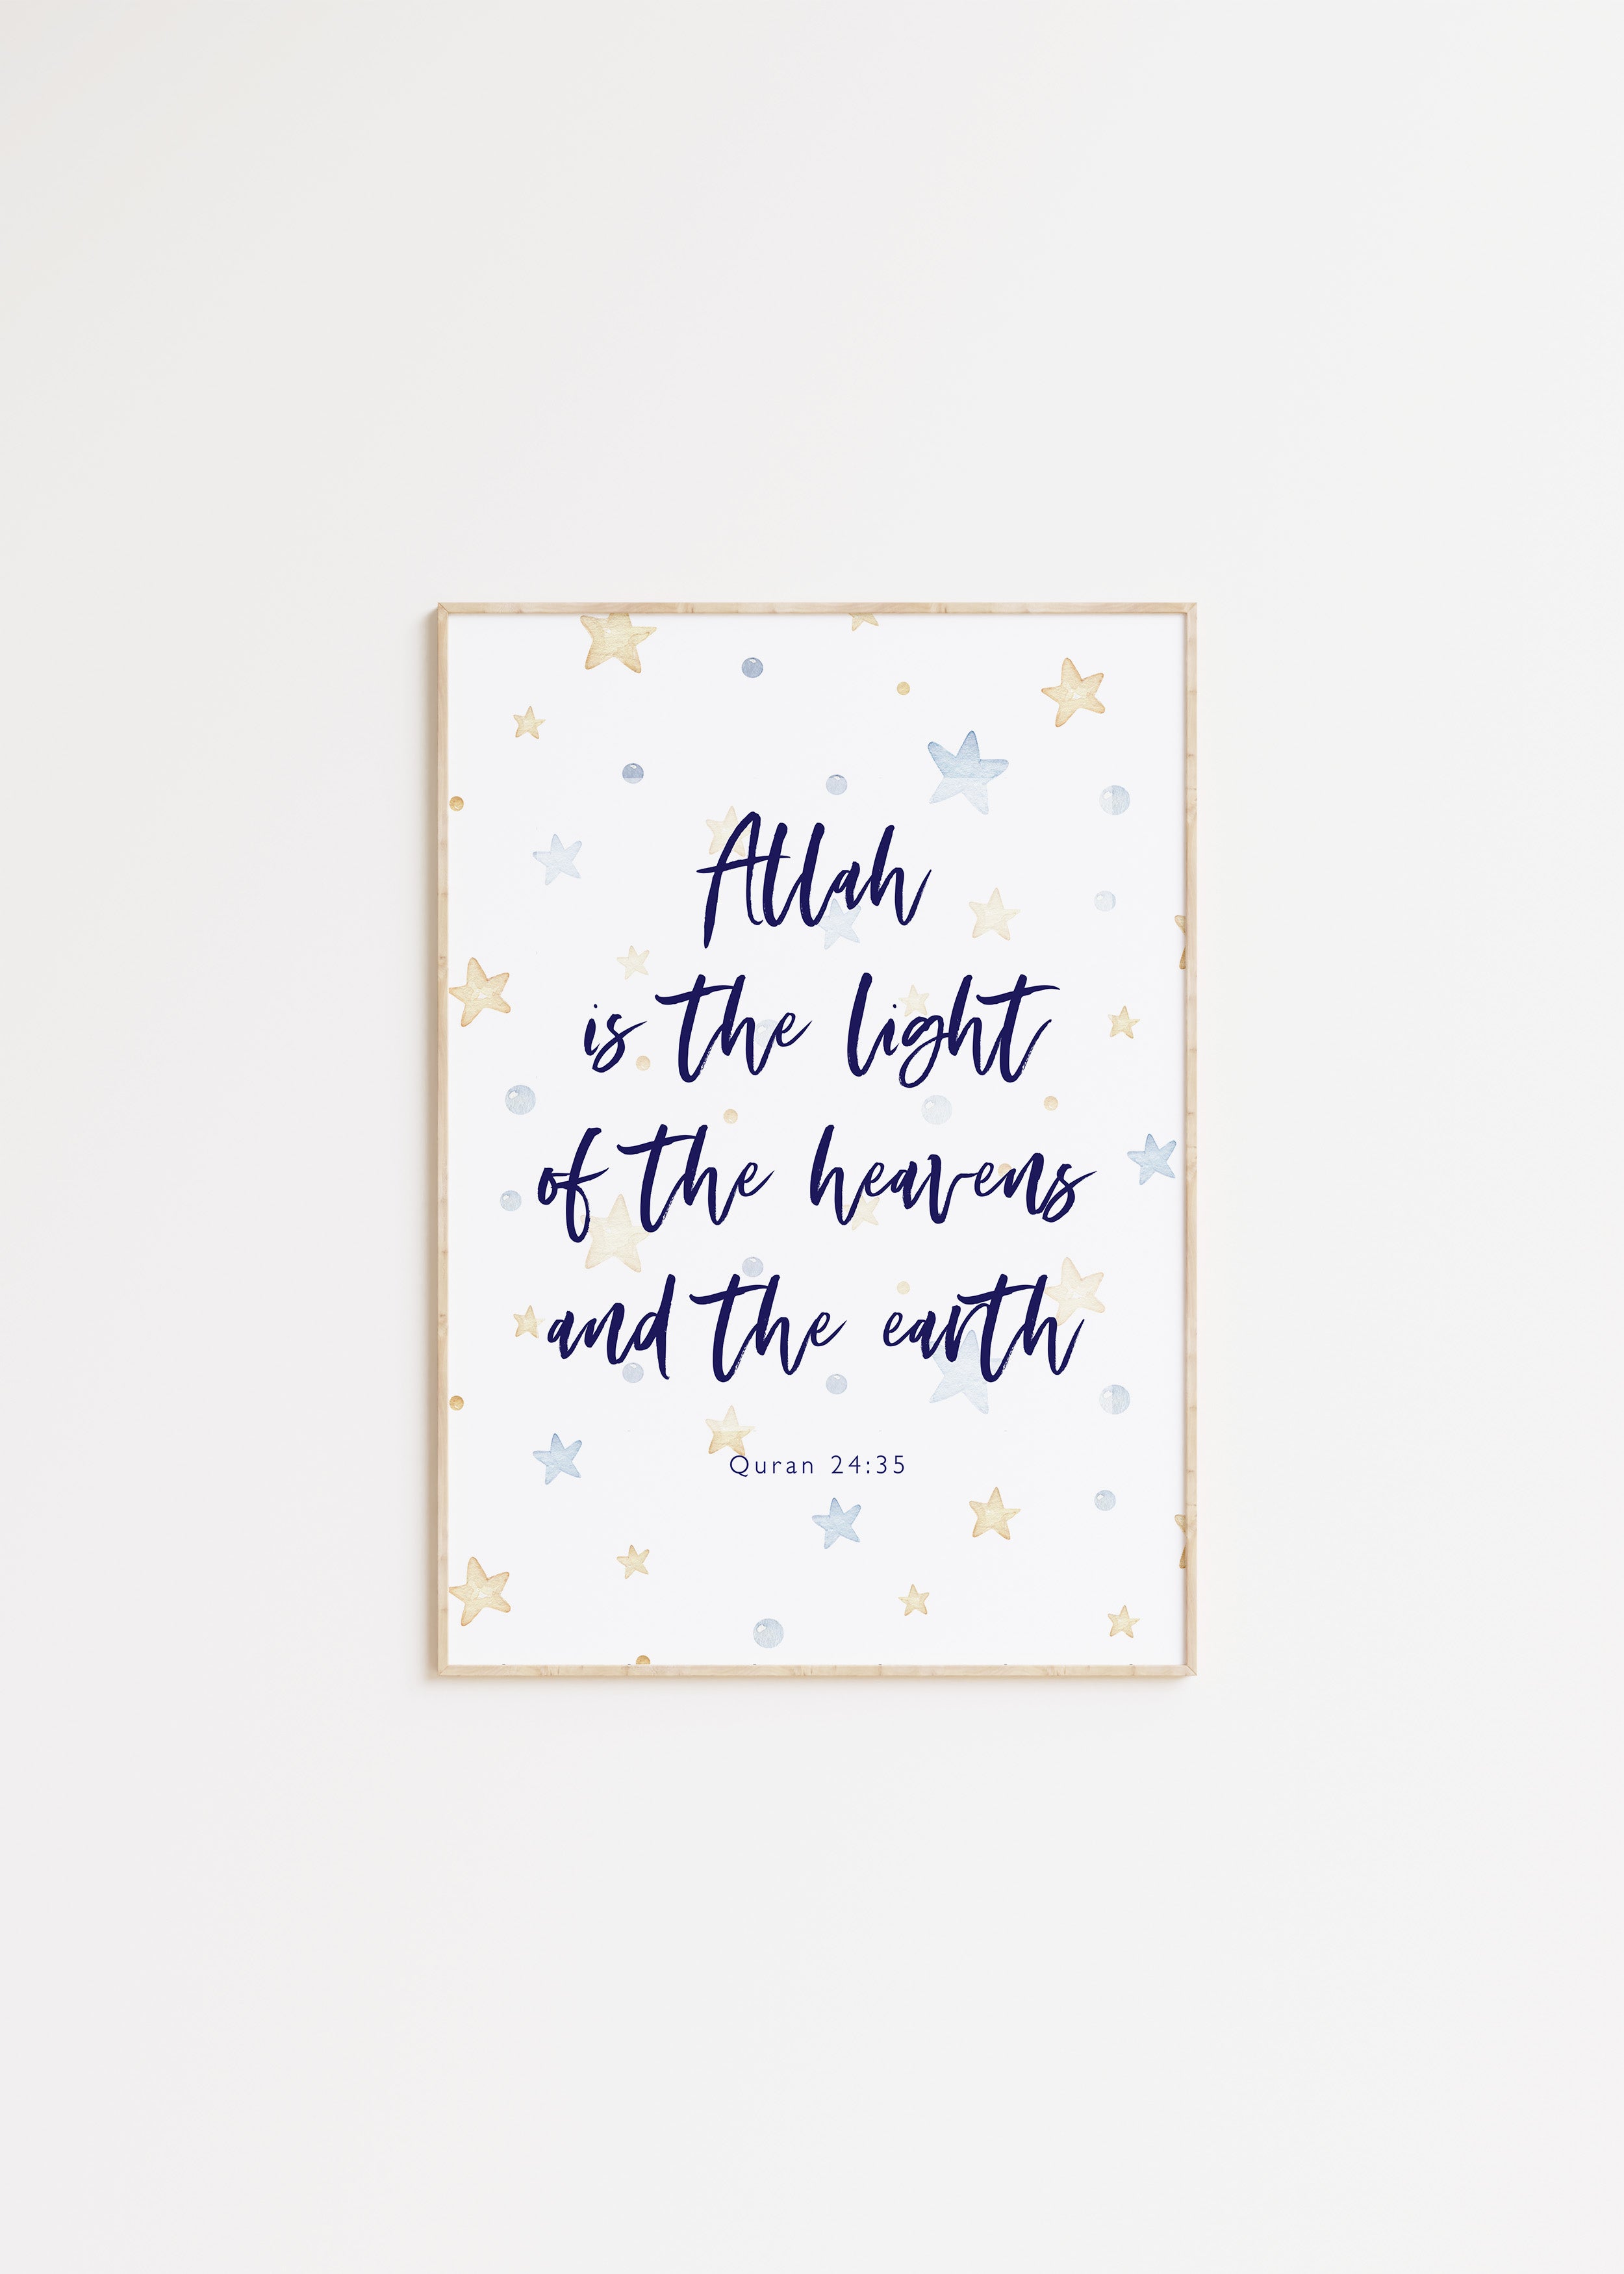 Allah
is the light
of the heavens
and the earth
Quran 24:35